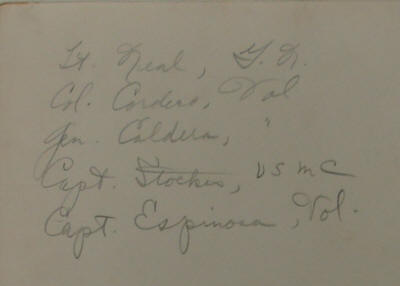 Lt. Neal, G. N.
Col. Cordero, Vol
Gen. Caldera, "
Capt. Stockes, USMC
Capt. Espinosa, Vol.